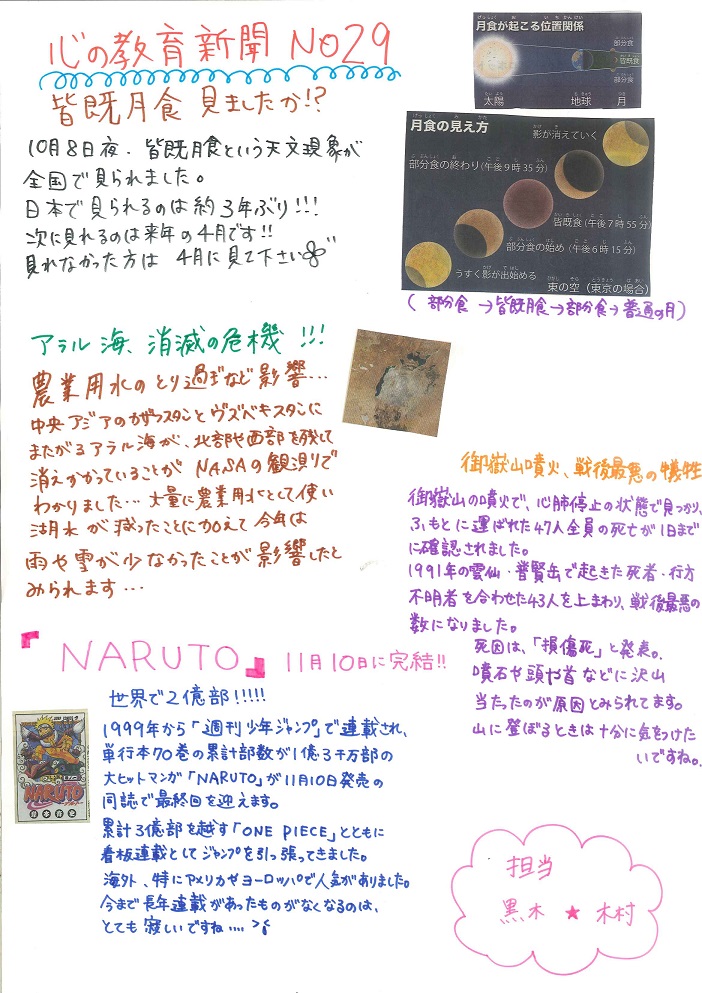 心の教育新聞 No29
皆既月食 見ましたか!?
10月8日夜、皆既月食という天文現象が
全国で見られました。
日本で見られるのは約3年ぶり!!!
次に見れるのは来年の4月です!!
見れなかった方は 4月に見て下さい
月食が起こる位置関係
部分食
皆既食
部分食
太陽 地球 月
月食の見え方
影が消えていく
部分食の終わり(午後9時35分)
皆既食(午後7時55分)
部分食の始め(午後6時15分)
うすく影が出始める
東の空(東京の場合)
(部分食→皆既月食→部分食→普通の月)
アラル海、消滅の危機 !!!
農業用水のとり過ぎなど影響…
中央アジアのカザフスタンとウズベキスタンに
またがるアラル海が、北部や西部を残して
消えかかっていることが NASAの観測りで
わかりました… 大量に農業用水として使い
湖水が減ったことに加えて今年は
雨や雪が少なかったことが影響したと
みられます…
御嶽山噴火、戦後最悪の犠牲
御嶽山の噴火で、心肺停止の状態で見つかり、
ふもとに運ばれた47人全員の死亡が1日まで
に確認されました。
1991年の雲仙・普賢岳で起きた死者・行方
不明者を合わせた43人を上まわり、戦後最悪の
数になりました。
死因は、「損傷死」と発表。
噴石や頭や首などに沢山
当たったのが原因とみられてます。
山に登ぼるときは十分に気をつけた
いですね。
『NARUTO』 11月10日に完結!!
世界で2億部!!!!!
1999年から「週刊少年ジャンプ」で連載され、
単行本70巻の累計部数が1億3千万部の
大ヒットマンガ「NARUTO」が11月10日発売の
同誌で最終回を迎えます。
累計3億部を越す「ONE PIECE」とともに
看板連載としてジャンプを引っ張ってきました。
海外、特にアメリカやヨーロッパで人気がありました。
今まで長年連載があったものがなくなるのは、
とても寂しいですね….
NARUTO
岸本斉史
担当
黒木 ★ 木村